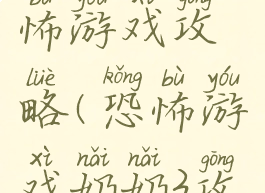 bù yóu xì gōng
怖游戏攻
lüè kǒng bù yóu
略(恐怖游
xì nǎi nǎi gōng
戏奶奶3攻